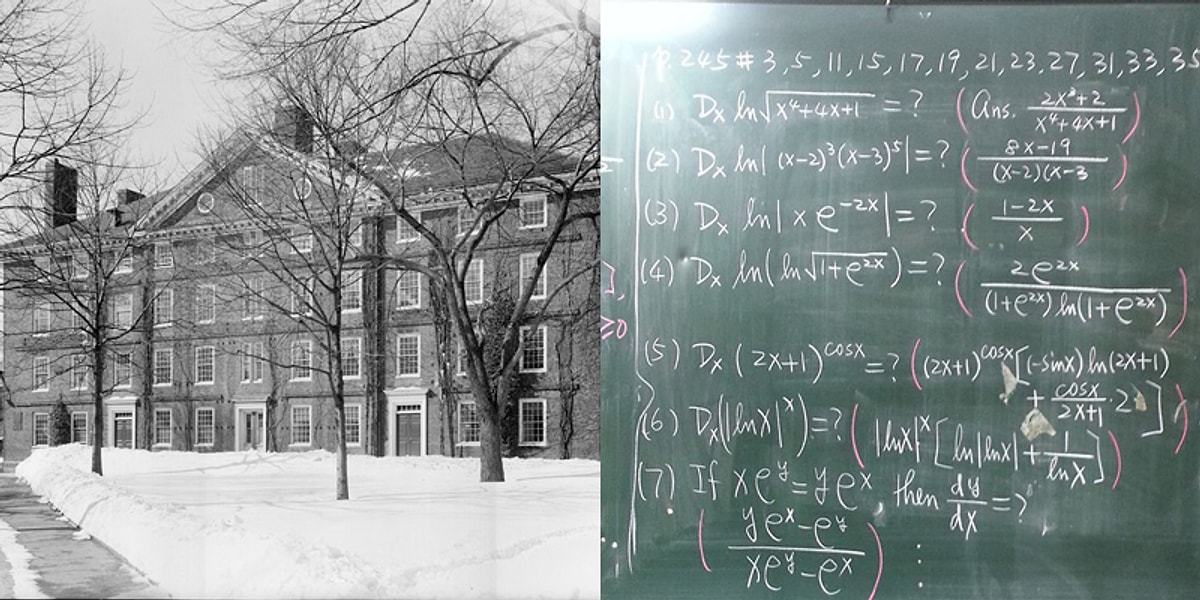 p.245 # 3, 5, 11, 15, 17, 19, 21, 23, 27, 31, 33, 35
(1) Dx ln√(x⁴+4x+1) = ? (Ans. (2x³+2)/(x⁴+4x+1))
(2) Dx ln|(x-2)³(x-3)⁵| = ? ((8x-19)/((x-2)(x-3))
(3) Dx ln|x e^(-2x)| = ? ((1-2x)/x)
(4) Dx ln(ln√(1+e^(2x))) = ? (2e^(2x)/((1+e^(2x)) ln(1+e^(2x))))
≥0
(5) Dx (2x+1)^cosx = ? ((2x+1)^cosx [(-sinx) ln(2x+1)
+ cosx/(2x+1) · 2])
(6) Dx(|lnx|^x) = ? (|lnx|^x [ln|lnx| + 1/lnx])
(7) If xe^y = ye^x, then dy/dx = ?
((ye^x - e^y)/(xe^y - e^x))